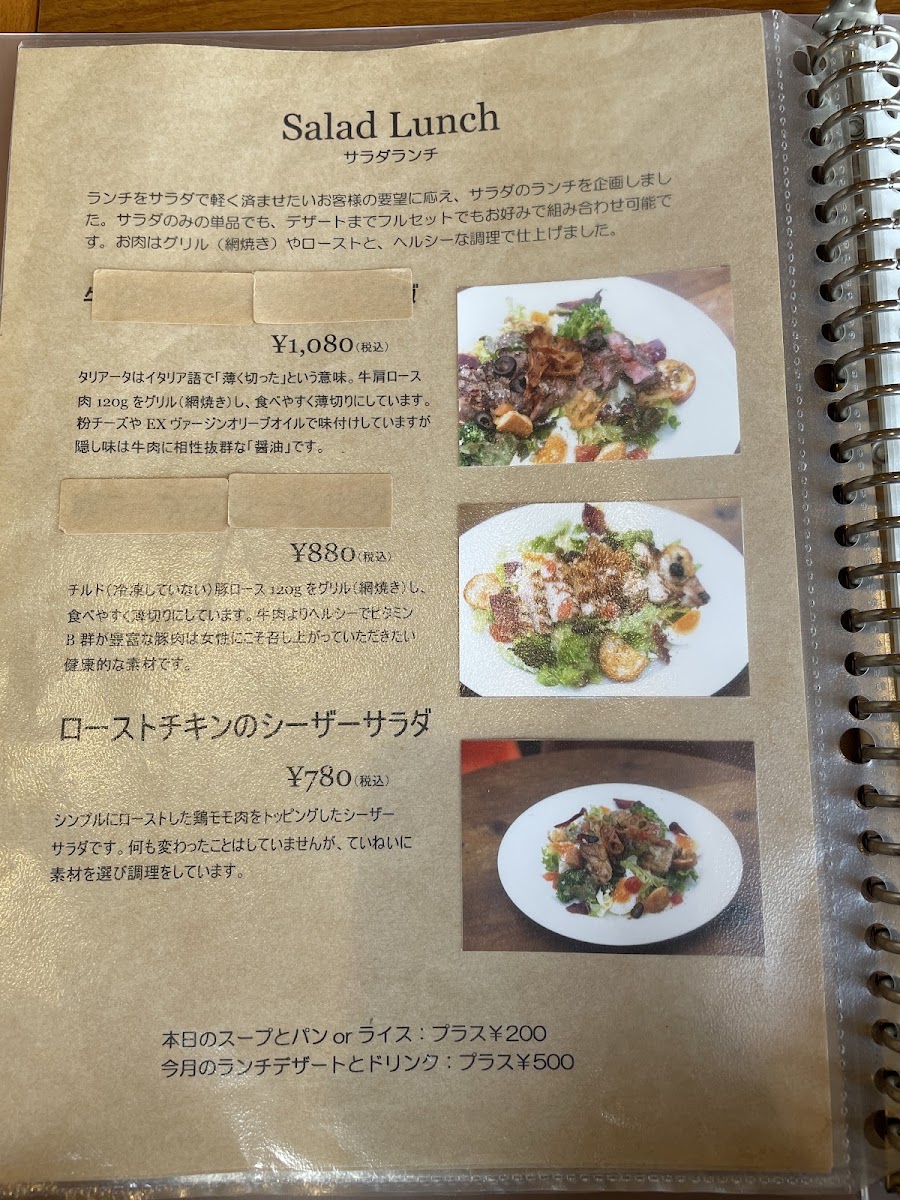 Salad Lunch
サラダランチ
ランチをサラダで軽く済ませたいお客様の要望に応え、サラダのランチを企画しまし
た。サラダのみの単品でも、デザートまでフルセットでもお好みで組み合わせ可能で
す。お肉はグリル（網焼き）やローストと、ヘルシーな調理で仕上げました。
¥1,080(税込)
タリアータはイタリア語で「薄く切った」という意味。牛肩ロース
肉 120g をグリル（網焼き）し、食べやすく薄切りにしています。
粉チーズや EX ヴァージンオリーブオイルで味付けしていますが
隠し味は牛肉に相性抜群な「醤油」です。
¥880(税込)
チルド（冷凍していない）豚ロース 120g をグリル（網焼き）し、
食べやすく薄切りにしています。牛肉よりヘルシーでビタミン
B 群が豊富な豚肉は女性にこそ召し上がっていただきたい
健康的な素材です。
ローストチキンのシーザーサラダ
¥780(税込)
シンプルにローストした鶏モモ肉をトッピングしたシーザー
サラダです。何も変わったことはしていませんが、ていねいに
素材を選び調理をしています。
本日のスープとパン or ライス：プラス¥200
今月のランチデザートとドリンク：プラス¥500